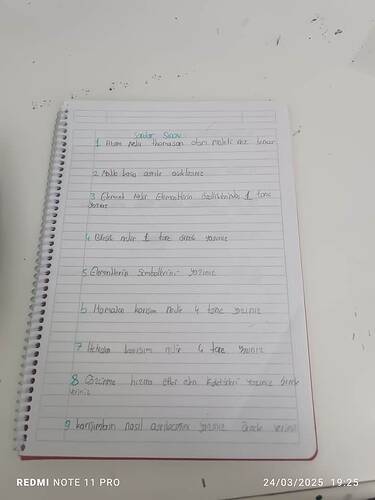 Sorular Sınav
1. Atom Nedir thomason atom modeli
2. açıklayınız
3 Element Nedir Elementlerin özelliklerinden 1 tane
yazınız
4 Bileşik nedir 1 tane örnek yazınız
5 Elementlerin Sembollerini yazınız
6 Homojen karışım Nedir 4 tane yazınız
7 karışım nedir 4 tane yazınız
8 Çözünme hızına etki eden yazınız örnek
veriniz
9 karışımların nasıl yazınız örnek veriniz
REDMI NOTE 11 PRO
24/03/2025 19:25